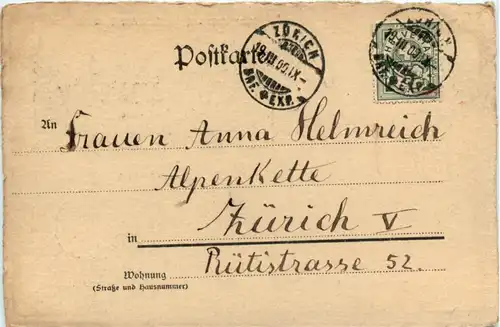 Postkarte
ZÜRICH
19.III.00.IX-
BRF. EXP.
ZÜRICH
HELVETIA
An Frauen Anna Helmreich
Alpenkette
in Zürich V
Wohnung Rütistrasse 52.
(Straße und Hausnummer)